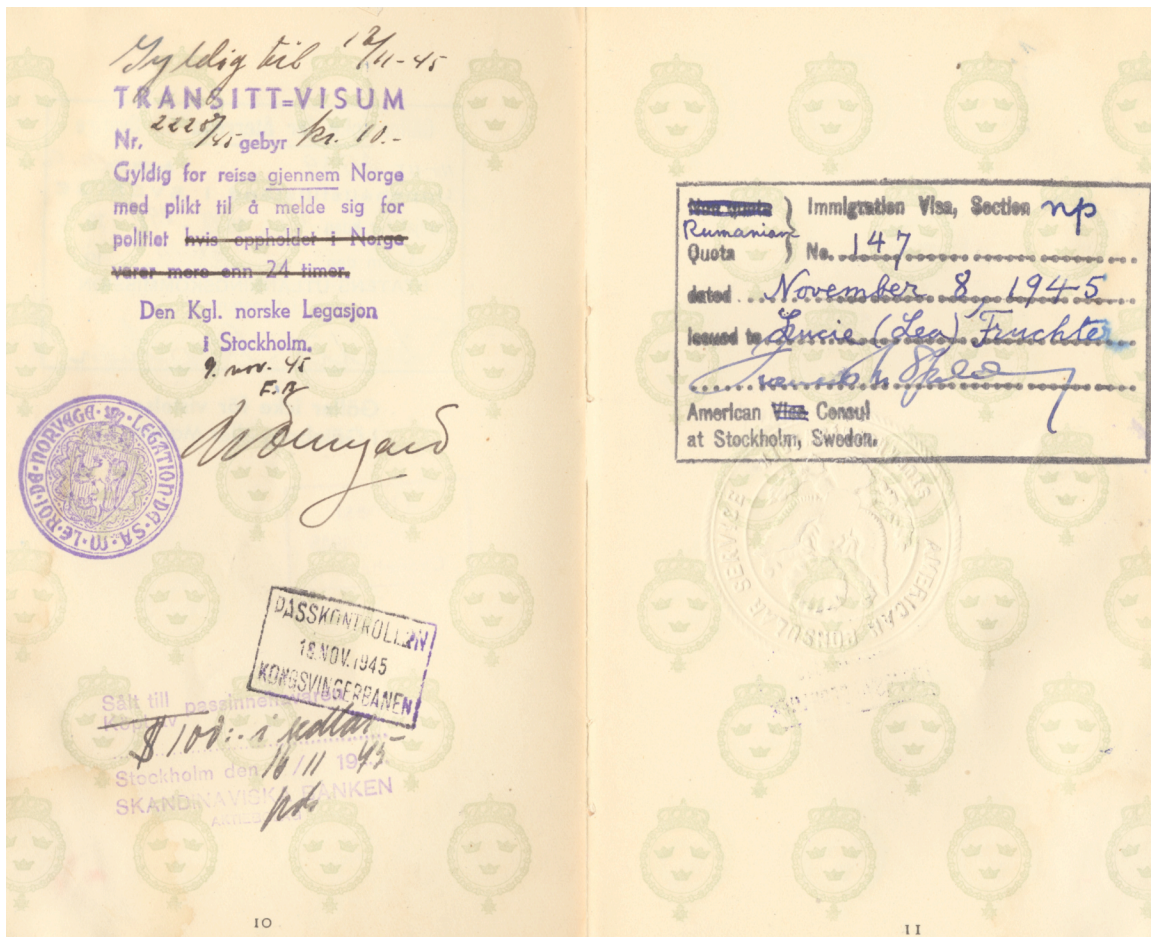 Gyldig til 12/11-45
TRANSITT=VISUM
Nr. 2228/45 gebyr kr. 10.-
Gyldig for reise gjennem Norge
med plikt til å melde sig for
politiet hvis oppholdet i Norge
varer mere enn 24 timer.
Den Kgl. norske Legasjon
i Stockholm.
9. nov. 45
E.B
LEGATION·DE·S.A.M·LE·ROI·DE·NORVEGE
PASSKONTROLLEN
18.NOV.1945
KONGSVINGERBANEN
Sålt till passinnehavaren
$ 100:- i sedlar
Stockholm den 16/11 1945
SKANDINAVISKA BANKEN
10
Non quota } Immigration Visa, Section np
Rumanian
Quota } No. 147
dated November 8, 1945
issued to Lucie (Lea) Fruchter
American Vice Consul
at Stockholm, Sweden.
AMERICAN CONSULAR SERVICE
11